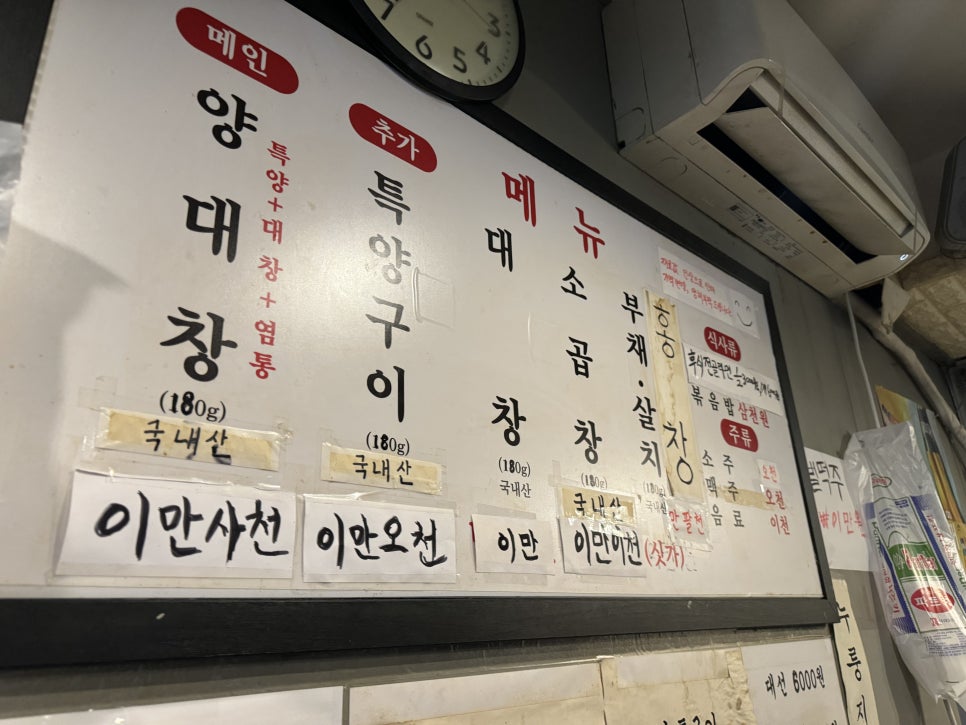 메인
양대창
특양+대창+염통
(180g)
국내산
이만사천
추가
특양구이
(180g)
국내산
이만오천
메뉴
대창
(180g)
국내산
이만
소곱창
국내산
이만이천
(싯가)
부채·살치
(180g)
국내산
홍창
만팔천
식사류
볶음밥 삼천원
주류
소주 오천
맥주 오천
음료 이천
₩이만원
누룽지
대선 6000원
3
4
5
6
7